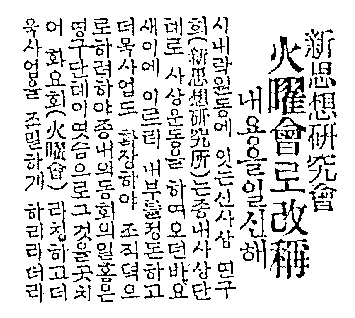 新思想硏究會
火曜會로改稱
내용을일신해
시내락원동에 잇는신사상 연구
회(新思想硏究所)는종내사상단
톄로 사상운동을 하여오던바요
새이에 이르러 내부를정돈하고
더욱사업도 확장하야 조직뎍으
로하려하야종내의동회의일홈은
연구단톄이엿슴으로그것을곳치
어 화요회(火曜會)라칭하고더
욱사업을 존밀하게 하리라더라